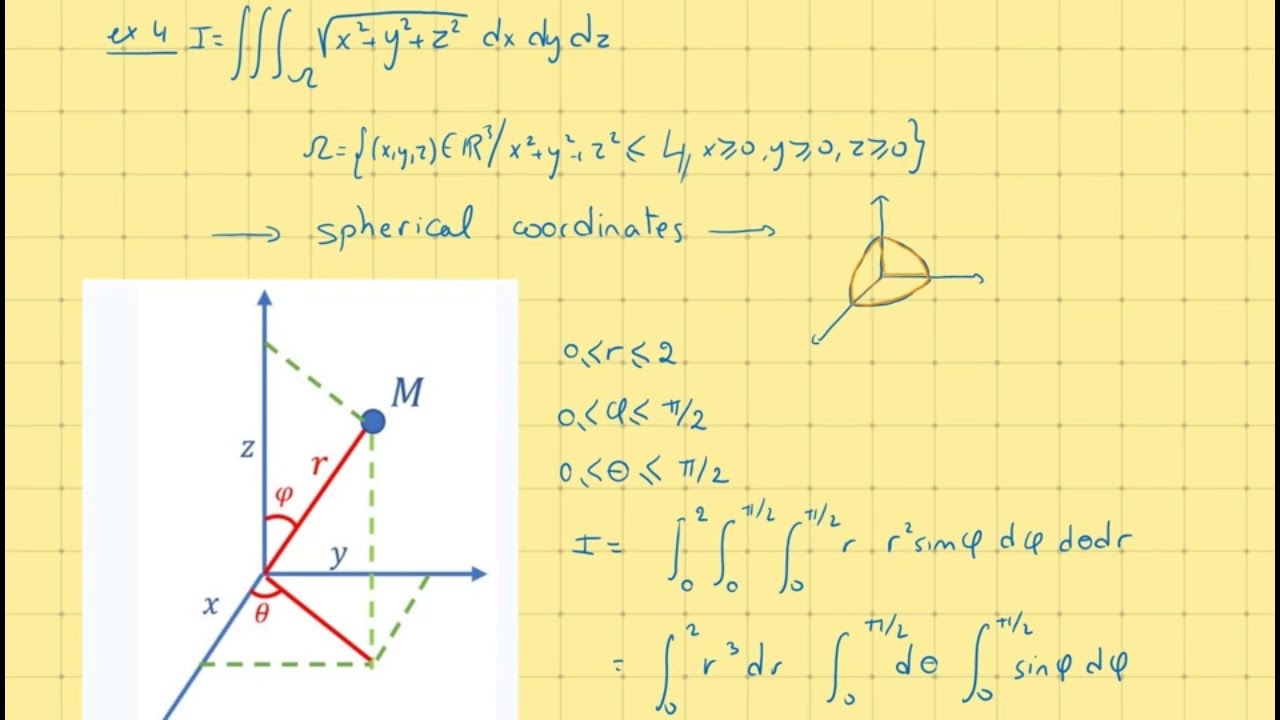 ex 4 I = ∭_Ω √(x²+y²+z²) dx dy dz
Ω = {(x,y,z) ∈ ℝ³ / x²+y²+z² ≤ 4, x ≥ 0, y ≥ 0, z ≥ 0}
→ spherical coordinates →
M
z
r
φ
y
x
θ
0 ≤ r ≤ 2
0 ≤ φ ≤ π/2
0 ≤ θ ≤ π/2
I = ∫₀² ∫₀^{π/2} ∫₀^{π/2} r r² sinφ dφ dθ dr
= ∫₀² r³ dr ∫₀^{π/2} dθ ∫₀^{π/2} sinφ dφ